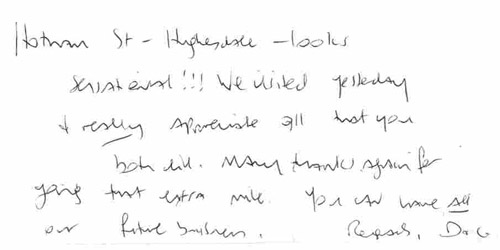 Hotham St - Hughesdale - looks
sensational!!! We visited yesterday
& really appreciate all that you
both did. Many thanks again for
going that extra mile. You can have all
our future business. Regards,